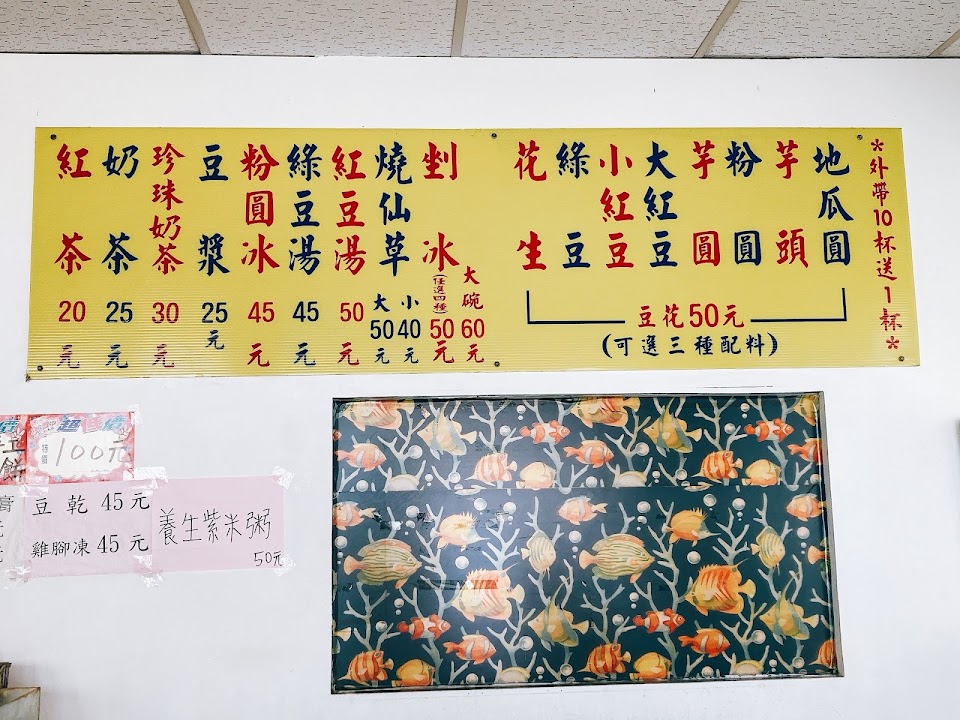 紅茶 20元
奶茶 25元
珍珠奶茶 30元
豆漿 25元
粉圓冰 45元
綠豆湯 45元
紅豆湯 50元
燒仙草 大50元 小40元
剉冰(任選四種) 50元 大碗60元
花生
綠豆
小紅豆
大紅豆
芋圓
粉圓
芋頭
地瓜圓
豆花50元
(可選三種配料)
*外帶10杯送1杯*
特價 100元
餅
膏
豆乾 45元
雞腳凍 45元
養生紫米粥
50元